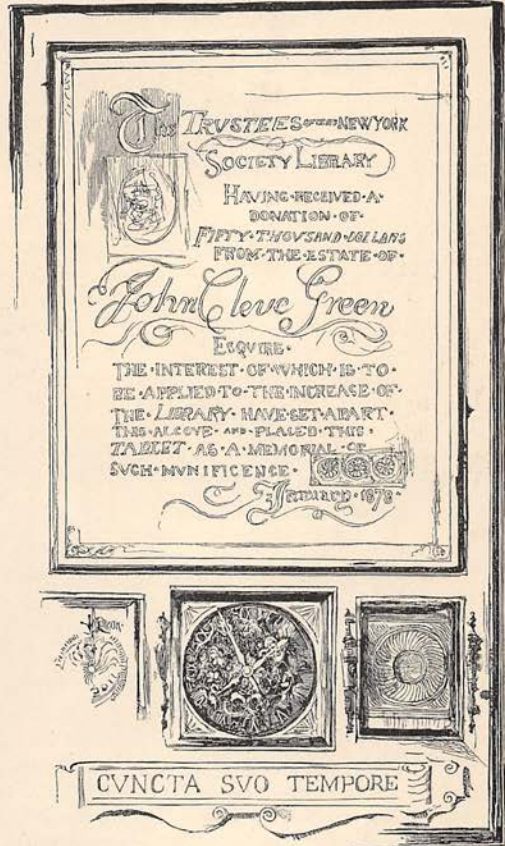 The TRVSTEES OF THE NEW YORK
SOCIETY LIBRARY
HAVING·RECEIVED·A·
DONATION·OF·
FIFTY·THOVSAND·DOLLARS
FROM·THE·ESTATE·OF·
John Cleve Green
ESQVIRE·
THE·INTEREST·OF·WHICH·IS·TO·
BE·APPLIED·TO·THE·INCREASE·OF·
THE·LIBRARY·HAVE·SET·APART·
THIS·ALCOVE·AND·PLACED·THIS·
TABLET·AS·A·MEMORIAL·OF
SVCH·MVNIFICENCE·
January·1878·
CVNCTA SVO TEMPORE